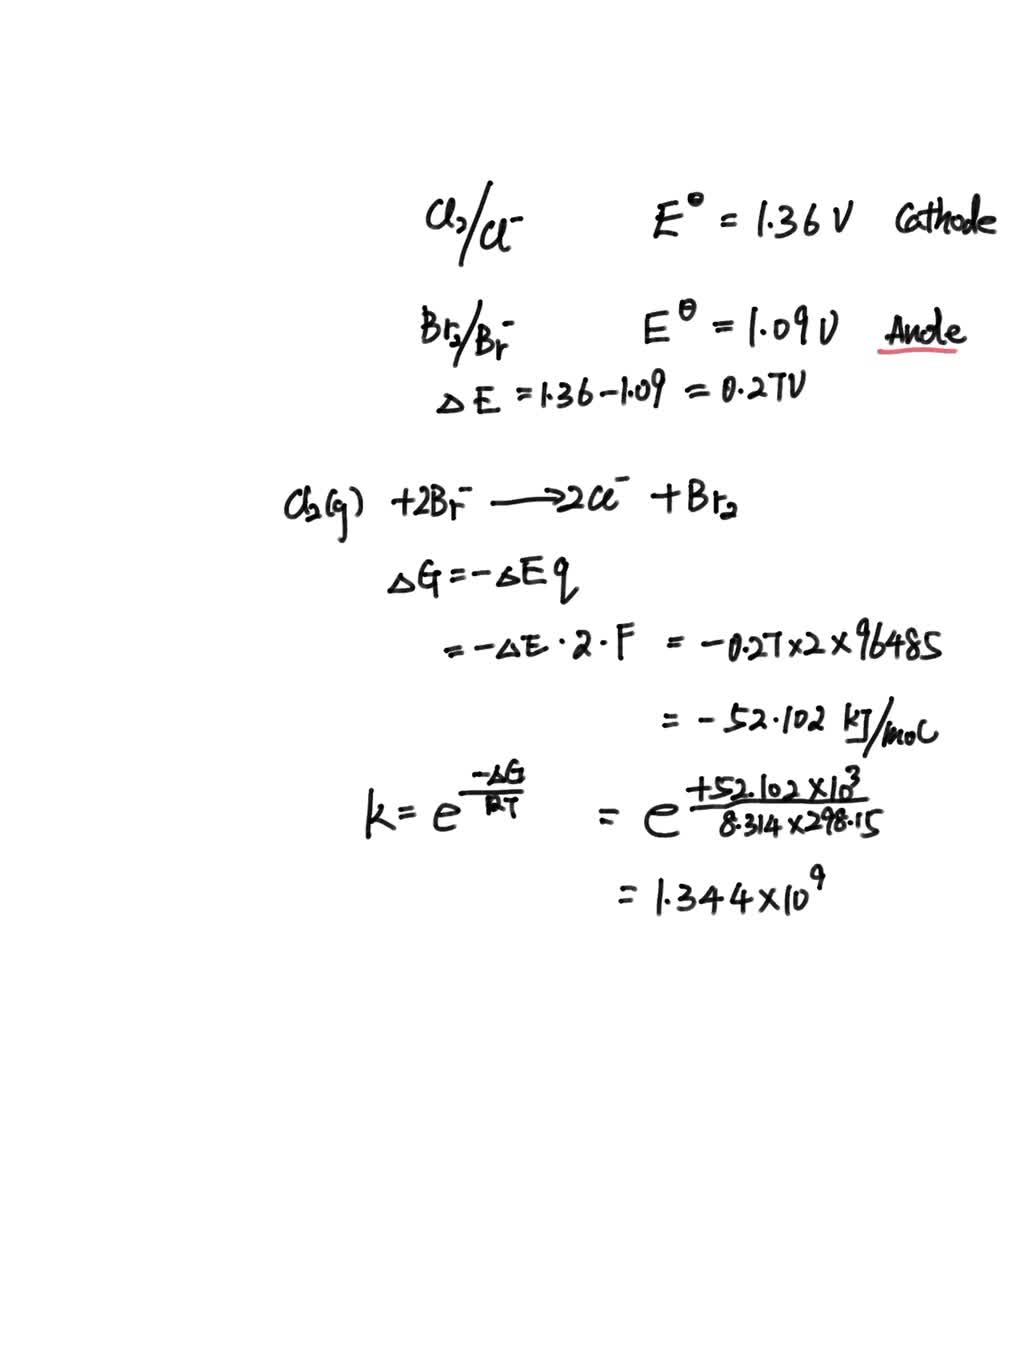 Cl₂/Cl⁻ E° = 1.36 V Cathode
Br₂/Br⁻ E^θ = 1.09 V Anode
ΔE = 1.36 - 1.09 = 0.27V
Cl₂(g) + 2Br⁻ ⟶ 2Cl⁻ + Br₂
ΔG = -ΔE q
= -ΔE · 2 · F = -0.27 × 2 × 96485
= -52.102 kJ/mol
k = e^(-ΔG/RT) = e^(+52.102 × 10³/8.314 × 298.15)
= 1.344 × 10⁹